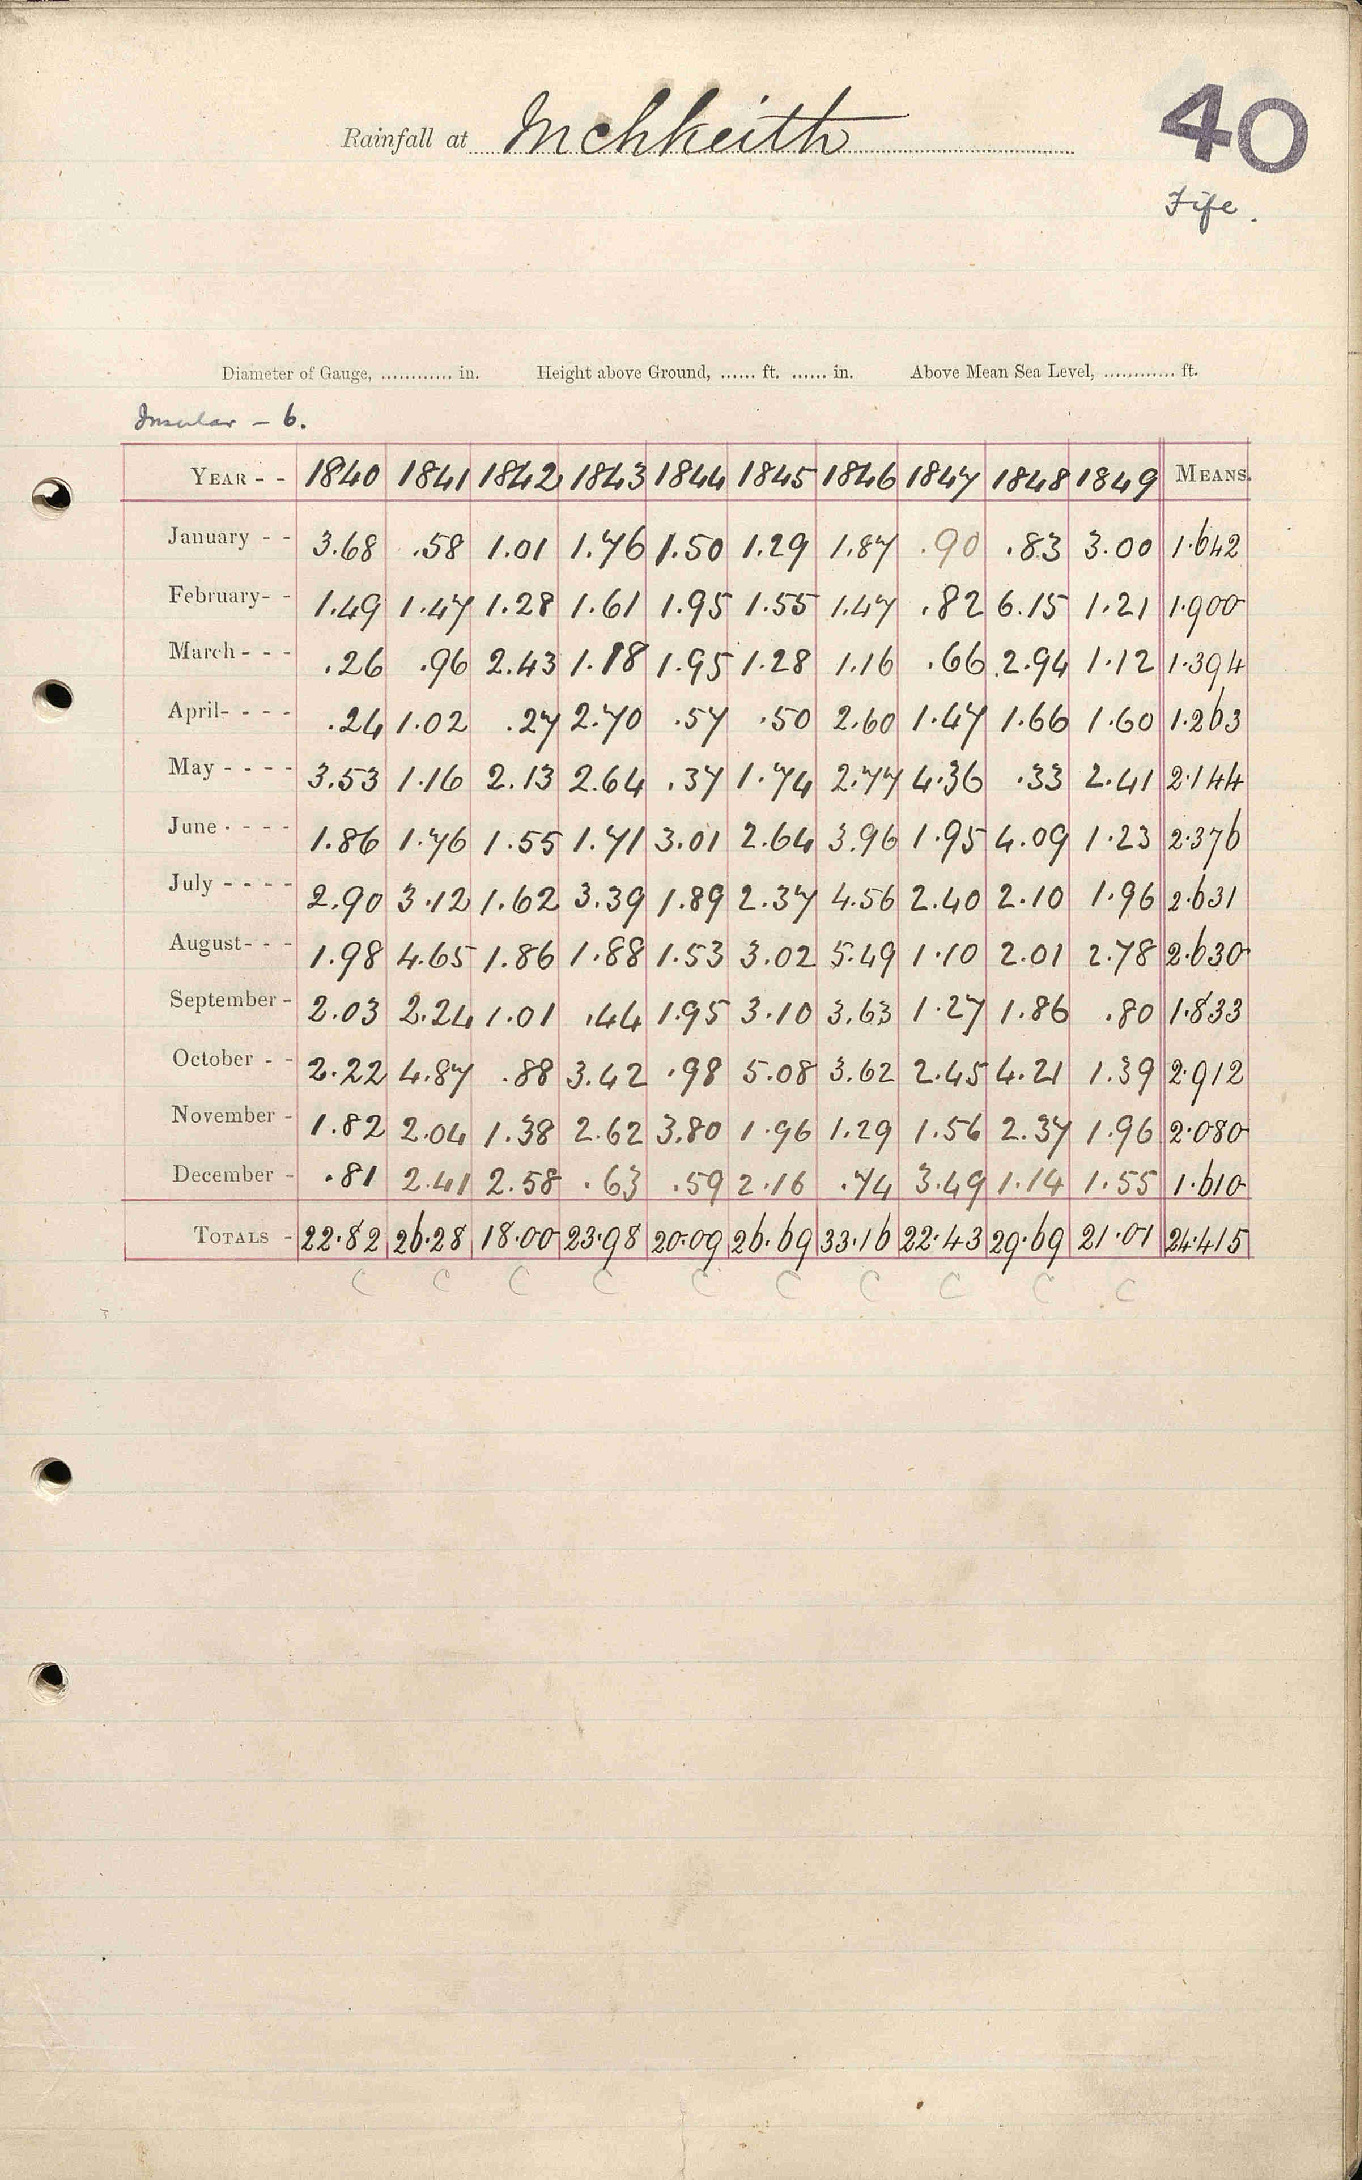 Rainfall at Inchkeith
40
Fife.
Diameter of Gauge, ............ in. Height above Ground, ...... ft. ...... in. Above Mean Sea Level, ............ ft.
Insular – 6.
YEAR - - 1840 1841 1842 1843 1844 1845 1846 1847 1848 1849 MEANS.
January - - 3.68 .58 1.01 1.76 1.50 1.29 1.87 .90 .83 3.00 1.642
February- - 1.49 1.47 1.28 1.61 1.95 1.55 1.47 .82 6.15 1.21 1.900
March - - - .26 .96 2.43 1.18 1.95 1.28 1.16 .66 2.94 1.12 1.394
April- - - - .24 1.02 .27 2.70 .57 .50 2.60 1.47 1.66 1.60 1.263
May - - - - 3.53 1.16 2.13 2.64 .37 1.74 2.77 4.36 .33 2.41 2.144
June - - - - 1.86 1.76 1.55 1.71 3.01 2.64 3.96 1.95 4.09 1.23 2.376
July - - - - 2.90 3.12 1.62 3.39 1.89 2.37 4.56 2.40 2.10 1.96 2.631
August- - - 1.98 4.65 1.86 1.88 1.53 3.02 5.49 1.10 2.01 2.78 2.630
September - 2.03 2.24 1.01 .44 1.95 3.10 3.63 1.27 1.86 .80 1.833
October - - 2.22 4.87 .88 3.42 .98 5.08 3.62 2.45 4.21 1.39 2.912
November - 1.82 2.04 1.38 2.62 3.80 1.96 1.29 1.56 2.37 1.96 2.080
December - .81 2.41 2.58 .63 .59 2.16 .74 3.49 1.14 1.55 1.610
TOTALS - 22.82 26.28 18.00 23.98 20.09 26.69 33.16 22.43 29.69 21.01 24.415
C C C C C C C C C C